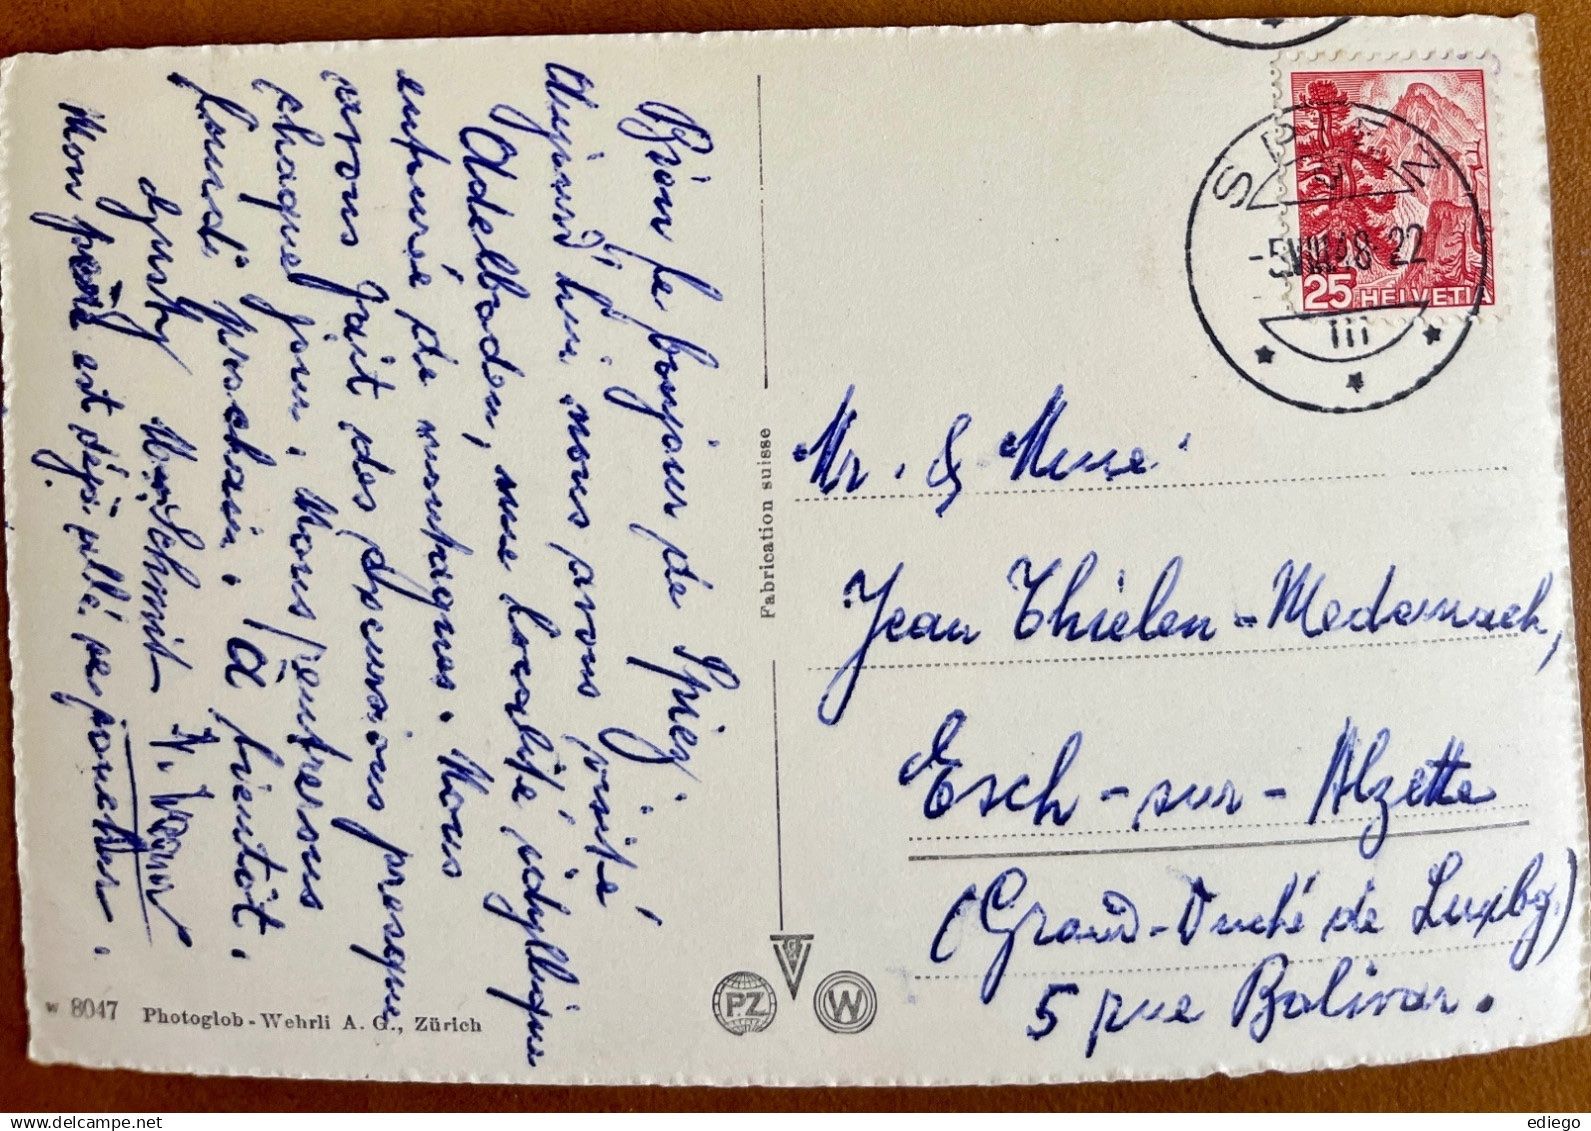 Bien le bonjour de Spiez
Aujourd'hui nous avons visité
Adelboden, une localité idyllique
entourée de montagnes. Nous
avons fait des excursions presque
chaque jour. Nous rentrerons
lundi prochain. A bientôt.
Schmit
Mon père est déjà allé se
Fabrication suisse
SPIEZ
2
-5.VIII.48-22
25 HELVETIA
Mr. & Mme
Jean Thielen-Medernach,
Esch-sur-Alzette
(Grand-Duché de Luxbg)
5 rue Bolivar.
PZ
W
W 8047 Photoglob-Wehrli A. G., Zürich
delcampe.net
ediego